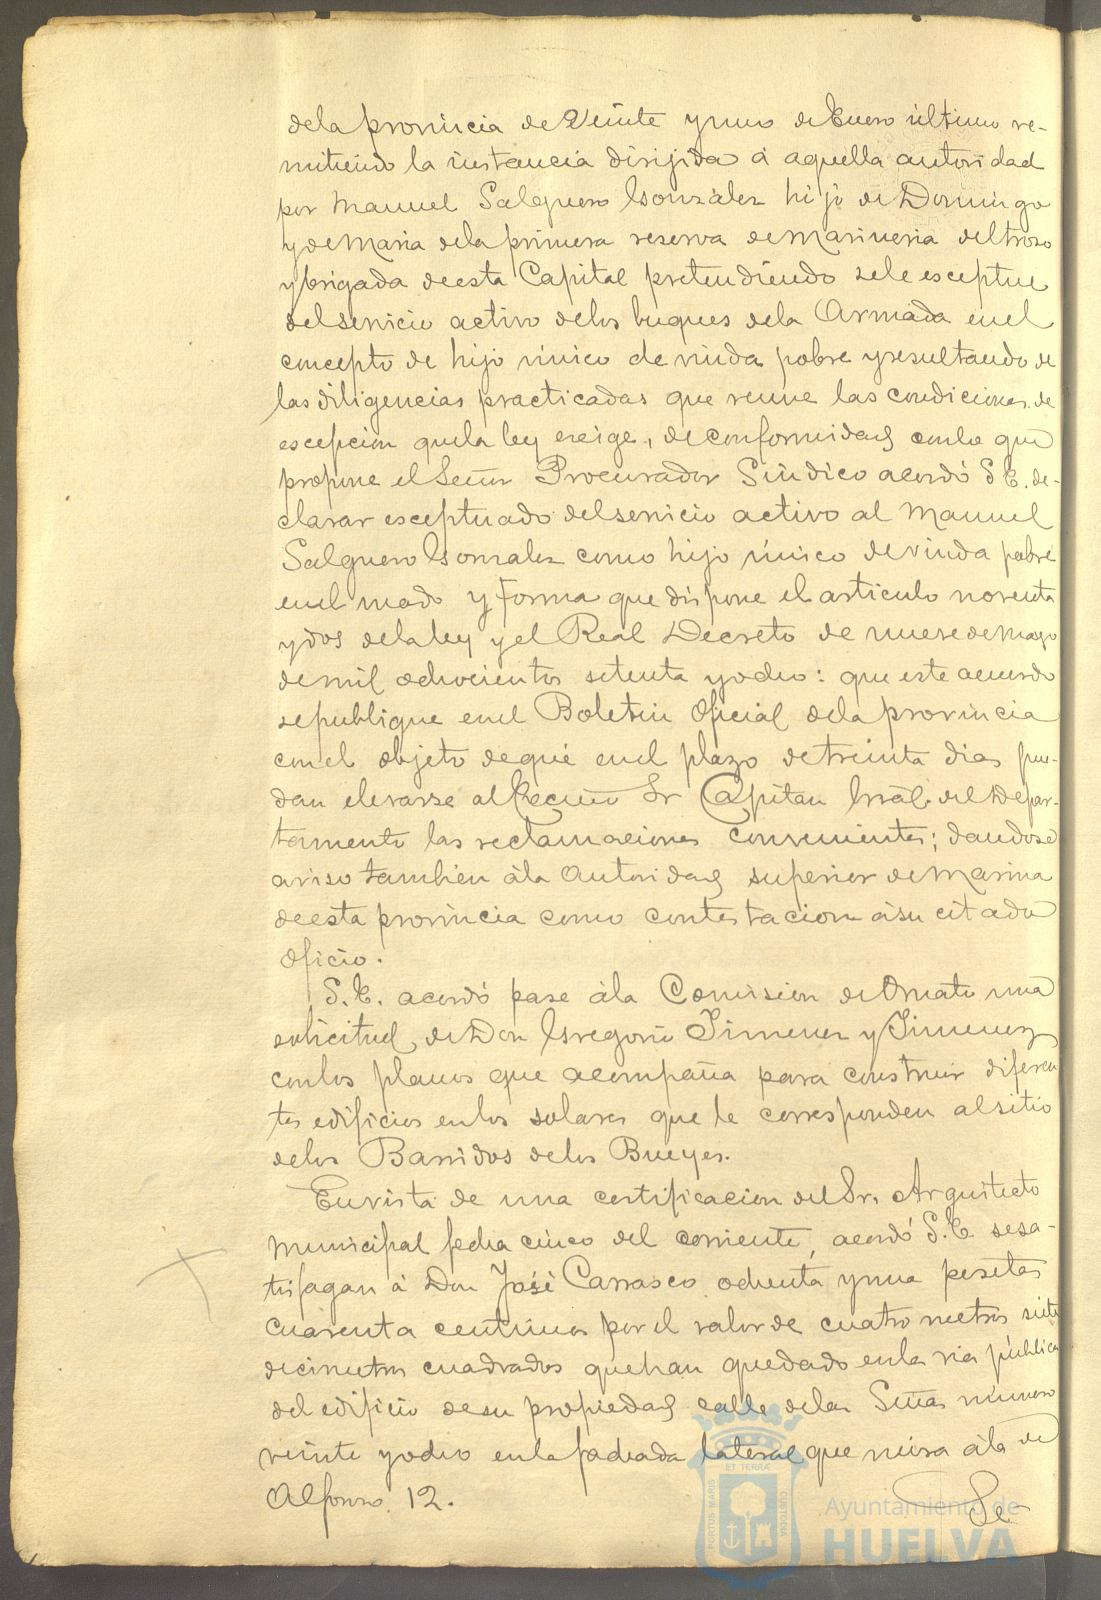 dela provincia de Veinte y uno de Enero último re-
mitiendo la instancia dirijida á aquella autoridad
por Manuel Salguero Gonzalez hijo de Domingo
y de Maria dela primera reserva de marineria del trozo
y brigada de esta Capital pretendiendo sele esceptue
del servicio activo delos buques dela Armada en el
concepto de hijo único de viuda pobre y resultando de
las diligencias practicadas que reune las condiciones de
escepcion quela ley exige, de conformidad conlo que
propone el Señor Procurador Síndico acordó S.E. de-
clarar esceptuado del servicio activo al Manuel
Salguero Gonzalez como hijo único de viuda pobre
en el modo y forma que dispone el articulo noventa
y dos dela ley y el Real Decreto de nueve de Mayo
de mil ochocientos setenta y ocho: que este acuerdo
se publique en el Boletin Oficial dela provincia
con el objeto de que en el plazo de treinta dias pue-
dan elevarse al Excmo Sr Capitan Gral. del Depar-
tamento las reclamaciones convenientes; dandose
aviso tambien ála Autoridad superior de Marina
de esta provincia como contestacion ásu citado
oficio.
S.E. acordó pase ála Comision de Ornato una
solicitud de Don Gregorio Jimenez y Jimenez
conlos planos que acompaña para construir diferen
tes edificios enlos solares que le corresponden al sitio
delos Barridos delos Bueyes.
En vista de una certificacion del Sr. Arquitecto
Municipal fecha cinco del corriente, acordó S.E. se sa-
tisfagan á Don José Carrasco ochenta y una pesetas
cuarenta centimos por el valor de cuatro metros siete
decimetros cuadrados que han quedado enla via pública
del edificio desu propiedad calle delas Señas número
veinte y ocho enla fachada lateral que mira ála de
Alfonso 12.
Se
PORTUS MARIS ET TERRÆ CUSTODIA
Ayuntamiento de
HUELVA